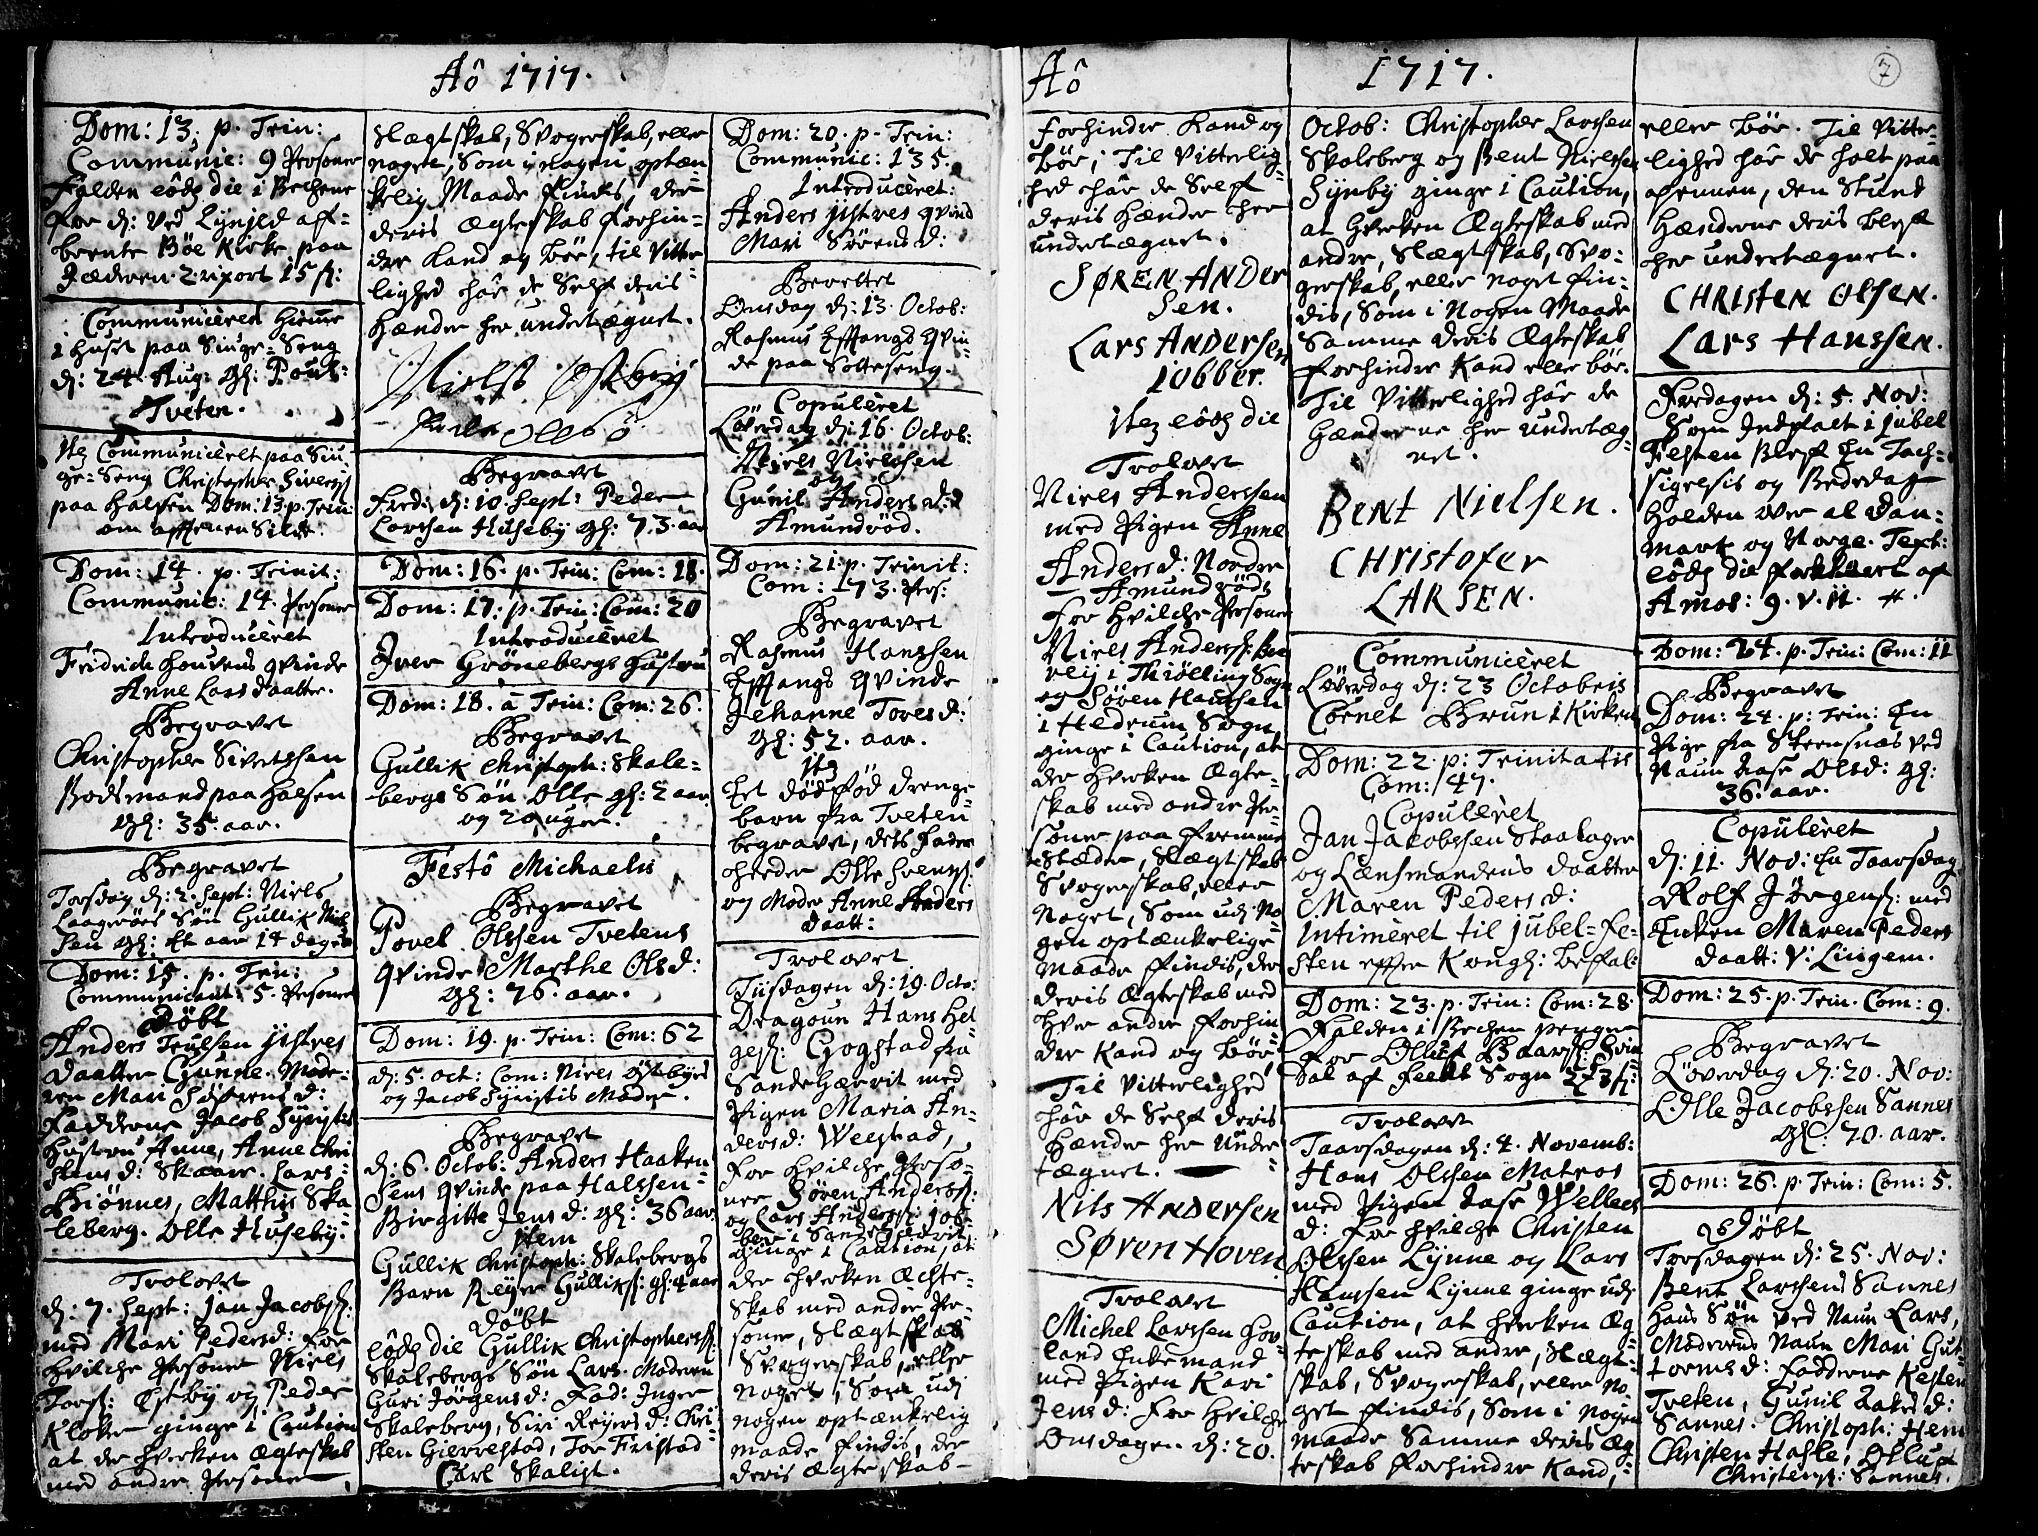 Aô 1717.
Dom: 13. p. Trin:
Communic: 9 Personer
Falden eôdj die i Bechene
for d: ved Lynjld af-
brente Böe Kirke paa
Jæderen 2 rixort 15 ß:
Communiceret hiemme
i huset paa Siuge-Seng
d: 24 Aug: Gl: Pouls
Tveten.
Item Communiceret paa Siu-
ge-Seng Christopher Siverss:
paa halsen Dom: 13. p. Trin:
om afftenen Silde.
Dom: 14. p. Trinit:
Communic: 14. Personer
Introduceret
Fridrich houvens qvinde
Anne Lars daatter.
Begravet
Christopher Sivertssen
Bodsmand paa halsen
Gl: 35. aar.
Begravet
Torsdag d: 2. Sept: Niels
Sön Gullik Niel
sen gl: Et aar 14 dage
Dom: 15. p. Trin:
Communicant: 5. Personer
Döbt
Anders Truelsen jistres
daatter Gunne. Mode-
ren Mari Sörens d:
Fadderne Jacob
hustru Anne, Anne Chri
stens d: Skaare. Lars
Biönnes, Matthis Ska
leberg. Olle Huseby.
Trolovet
d: 7. Sept: Jan Jacobss:
med Mari Pedersd: for
hvilche Personer Niels
Torss: Östby og Peder
Kloker ginge i Caution
at de hverken Ægteskab
med andre Personer
Slægtskab, Svogerskab, eller
noget, Som i nogen optæn
kelig Maade findes, der
deris Ægteskab forhin-
dre kand og bör, til vitter
lighed har de Self deris
hænder her undertægnet.
Niels Östbÿ
Begravet
Fred: d: 10. Sept: Peder
Lartsen Huseby gl: 73. aar
Dom: 16. p. Trin: Com: 18.
Dom: 17. p. Trin: Com: 20
Introduceret
Iver Grönebergs hustru
Dom: 18. à Trin: Com: 26.
Begravet
Gullik Christoph: Skale-
bergs Sön Olle gl: 2 aar
og 20 uger.
Festô Michaelis
Begravet
Povel Olssen Tvetens
qvinde Marthe Olsd:
Gl: 76. aar.
Dom: 19. p. Trin: Com: 62
d: 5. oct: Com: Niels östbyes
og Jacob Moder.
Begravet
d: 6. Octob: Anders Haaken
sens qvinde paa Halssen
Birgitte Jens d: gl: 36 aar
Item
Gullik Christoph: Skalebergs
Barn Reyer Gulliks: gl: 4 aar
Döbt
eôdj die Gullik Christopherss:
Skalebergs Sön Lars. Moderen
Guri Jörgens d: Fad: Inger
Skaleberg, Siri Reyers d: Chri
sten Gierrestad, Tor Fristad
Carl Skalist.
Dom: 20. p. Trin:
Communic: 135.
Introduceret:
Anders jistres qvind
Mari Sörens d:
Berettet
Onsdag d: 13. Octob:
Rasmus qvin-
de paa Sotteseng.
Copuleret
Löverdag d: 16. Octob:
Niels Nielssen
og
Gunil Anders d:
Amundröd.
Dom: 21. p. Trinit:
Com: 173. Pers:
Begravet
Rasmus Hanssen
qvinde
Jehanne Toresd:
Gl: 52. aar.
Item
Et dödföd drenge-
barn fra Tveten
begravet, dets Fader
heeder Olle Svenss:
og Moder Anne Anders
daatt:
Trolovet
Tiisdagen d: 19. Octo:
Dragoun Hans Hel-
gess: Gogstad fra
Sandehærrit med
Pigen Maria An-
dersd: Weestad,
for hvilche Perso-
ner Sören Anderss:
og Lars Anderss: Job-
ber i Sandehærrit
ginge i Caution, at
der hverken Ægte-
skab med andre Per-
soner, Slægtskab
Svogerskab, eller
noget, Som udi
nogen optænkelig
maade findis, der
deris Ægteskab
Aô 1717.
7
forhindre kand og
bör; Til Vitterlig
hed har de Self
deris hænder her
undertægnet.
SØREN ANDER
Sen.
LARS ANDERSEN
IOBBER.
Item eôdj die
Trolovet
Niels Anderssen
med Pigen Anne
Anders d: Nordre
Amundröd,
for hvilche Personer
Niels Anderss:
i Thiölling Sogn
og Sören Hanssen
i Hedrum Sogn
ginge i Caution, at
der hverken Ægte-
skab med andre Per-
soner paa fremme
Stæder, Slægtskab
Svogerskab, eller
Noget, Som udj No
gen optænkelige
Maade findis, der
deris Ægteskab med
hver andre forhin
dre kand og bör.
Til Vitterlighed
har de Self deris
hænder her under
tægnet.
NILS ANDERSEN
SØREN HOVEN
Trolovet
Michel Larssen Hov-
land Enkemand
med Pigen Kari
Jens d: for hvilche
Onsdagen d: 20.
Octob: Christopher Larssen
Skaleberg og Bent Nielssen
Synby ginge i Caution,
at hverken Ægteskab med
andre, Slægtskab, Svo-
gerskab, eller noget fin-
dis, Som i Nogen Maade
Samme deris Ægteskab
forhindre Kand eller bör.
Til Vitterlighed har de
hænderne her undertæg-
net.
BENT NIELSEN.
CHRISTOFER
LARSEN.
Communiceret
Löverdag d: 23 Octobris
Cornet Brun i Kirken
Dom: 22. p: Trinitatis
Com: 47.
Copuleret
Jan Jacobssen Staalager
og Lænsmandens daatter
Maren Peders d:
Intimeret til jubel-fe-
sten effter Kongl: befal:
Dom: 23. p. Trin: Com: 28.
Falden i Bechen penge
for Oluf
dal af Sogn
Trolovet
Taarsdagen d: 4. Novemb:
Hans Olssen Matros
med Pigen Aase Wellees
d: for hvilche Christen
Olssen Lynne og Lars
Hanssen Lynne ginge udj
Caution, at hverken Æg-
teskab med andre, Slægt-
skab, Svogerskab, eller No-
get findis, Som i nogen
maade Samme deris Æg
teskab forhindre kand,
eller bör. Til Vitter-
lighed har de holt paa
Pennen, den Stund
Hænderne deris blef
her undertægnet.
CHRISTEN OLSEN.
LARS HANSSEN.
Fredagen d: 5. Nov:
Som Indfalt i jubel
Festen Blef En Tach-
sigelsis og Bededag
holden over al Dan-
mark og Norge. Text:
eôdj die forklaaret af
Amos: 9. v. 11.
Dom: 24. p. Trin: Com: 11
Begravet
Dom: 24. p: Trin: En
Pige fra Steensnæs ved
Naun Aase Olsd: gl:
36. aar.
Copuleret
d: 11. Nov: En Taarsdag
Rolf Jörgens: med
Enken Maren Peders
daatt: v: Lingem.
Dom: 25. p. Trin. Com: 9.
Begravet
Löverdag d: 20. Nov:
Olle Jacobssen Sannes
gl: 70. aar.
Dom: 26. p. Trin: Com: 5.
Döbt
Torsdagen d: 25. Nov:
Bent Larssens Sannes
hans Sön ved Naun Lars,
Moderens Naun Mari Gut-
torms d: Fadderne Kesten
Tveten, Gunil Aakes d:
Sannes. Christoph: Hem
Christen Hasle, Olluf
Christenss: Sannes.